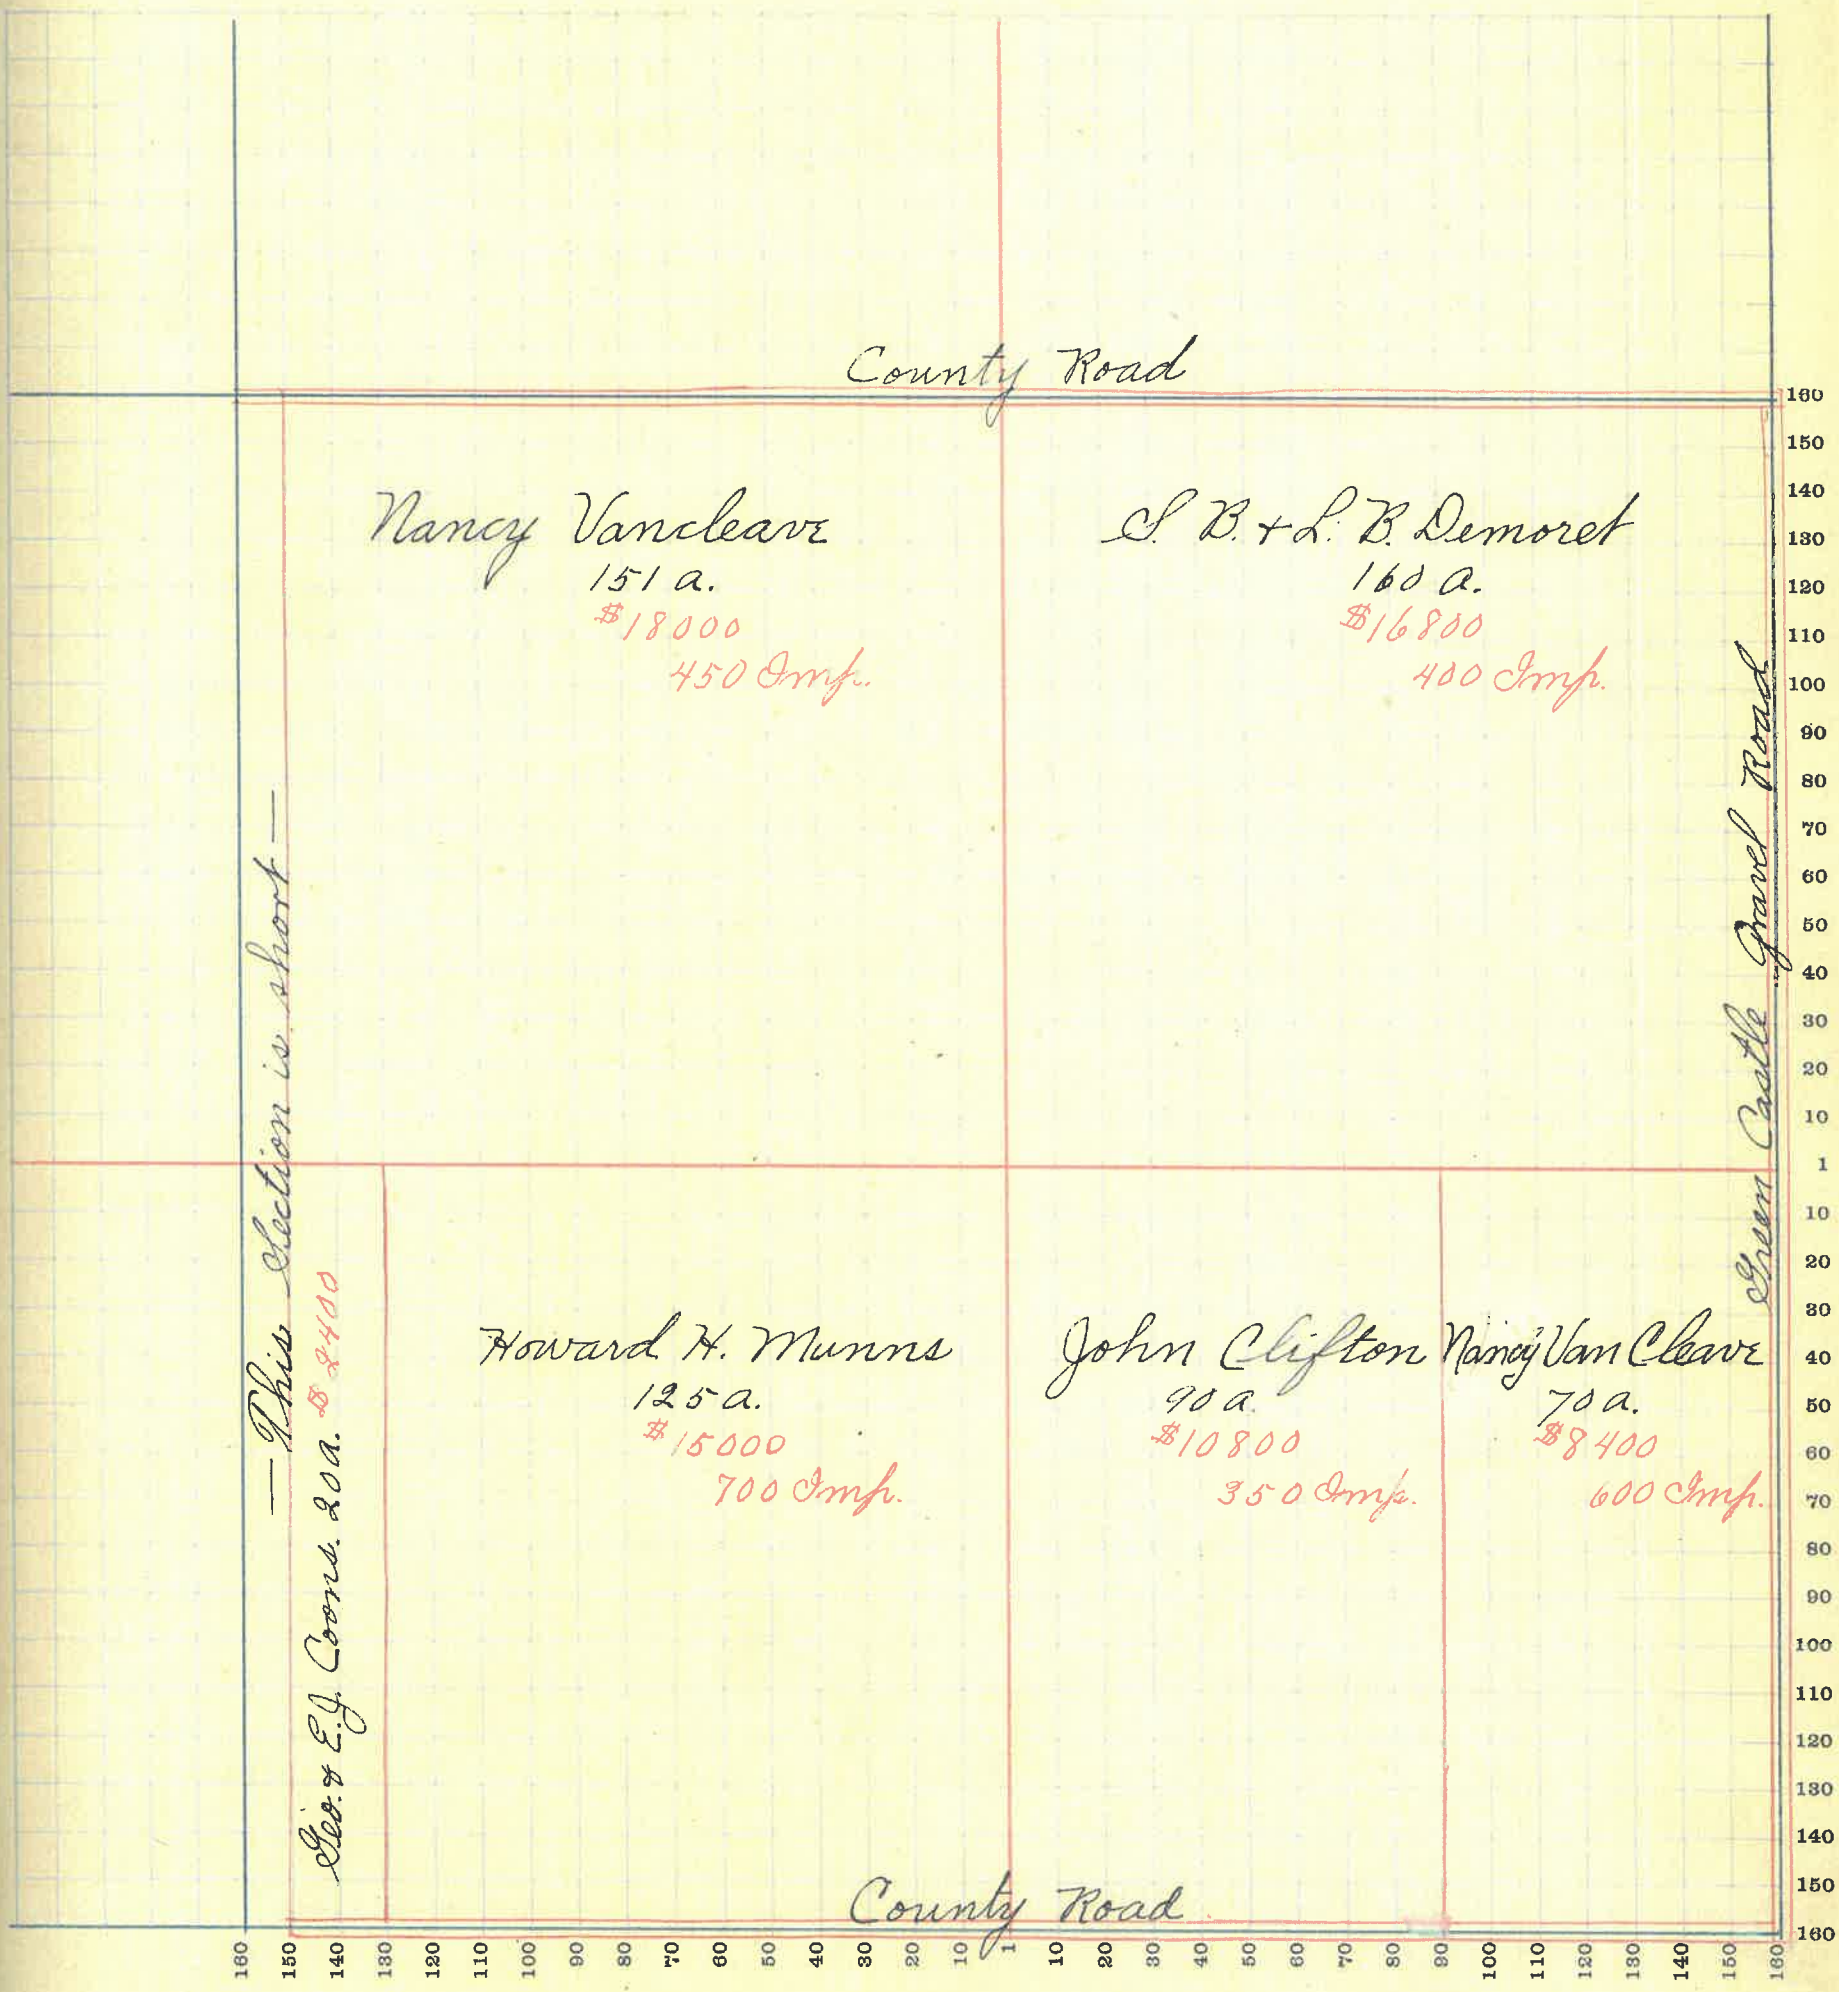 County Road
Nancy Vancleave
151 a.
$18000
450 Imp.
S. B. + L. B. Demoret
160 a.
$16800
400 Imp.
Green Castle Gravel Road
— This Section is short —
Geo. & E.J. Coons. 20 a. $2400
Howard H. Munns
125 a.
$15000
700 Imp.
John Clifton
90 a
$10800
350 Imp.
Nancy Van Cleave
70 a.
$8400
600 Imp.
County Road
160
150
140
130
120
110
100
90
80
70
60
50
40
30
20
10
1
10
20
30
40
50
60
70
80
90
100
110
120
130
140
150
160
160 150 140 130 120 110 100 90 80 70 60 50 40 30 20 10 1 10 20 30 40 50 60 70 80 90 100 110 120 130 140 150 160